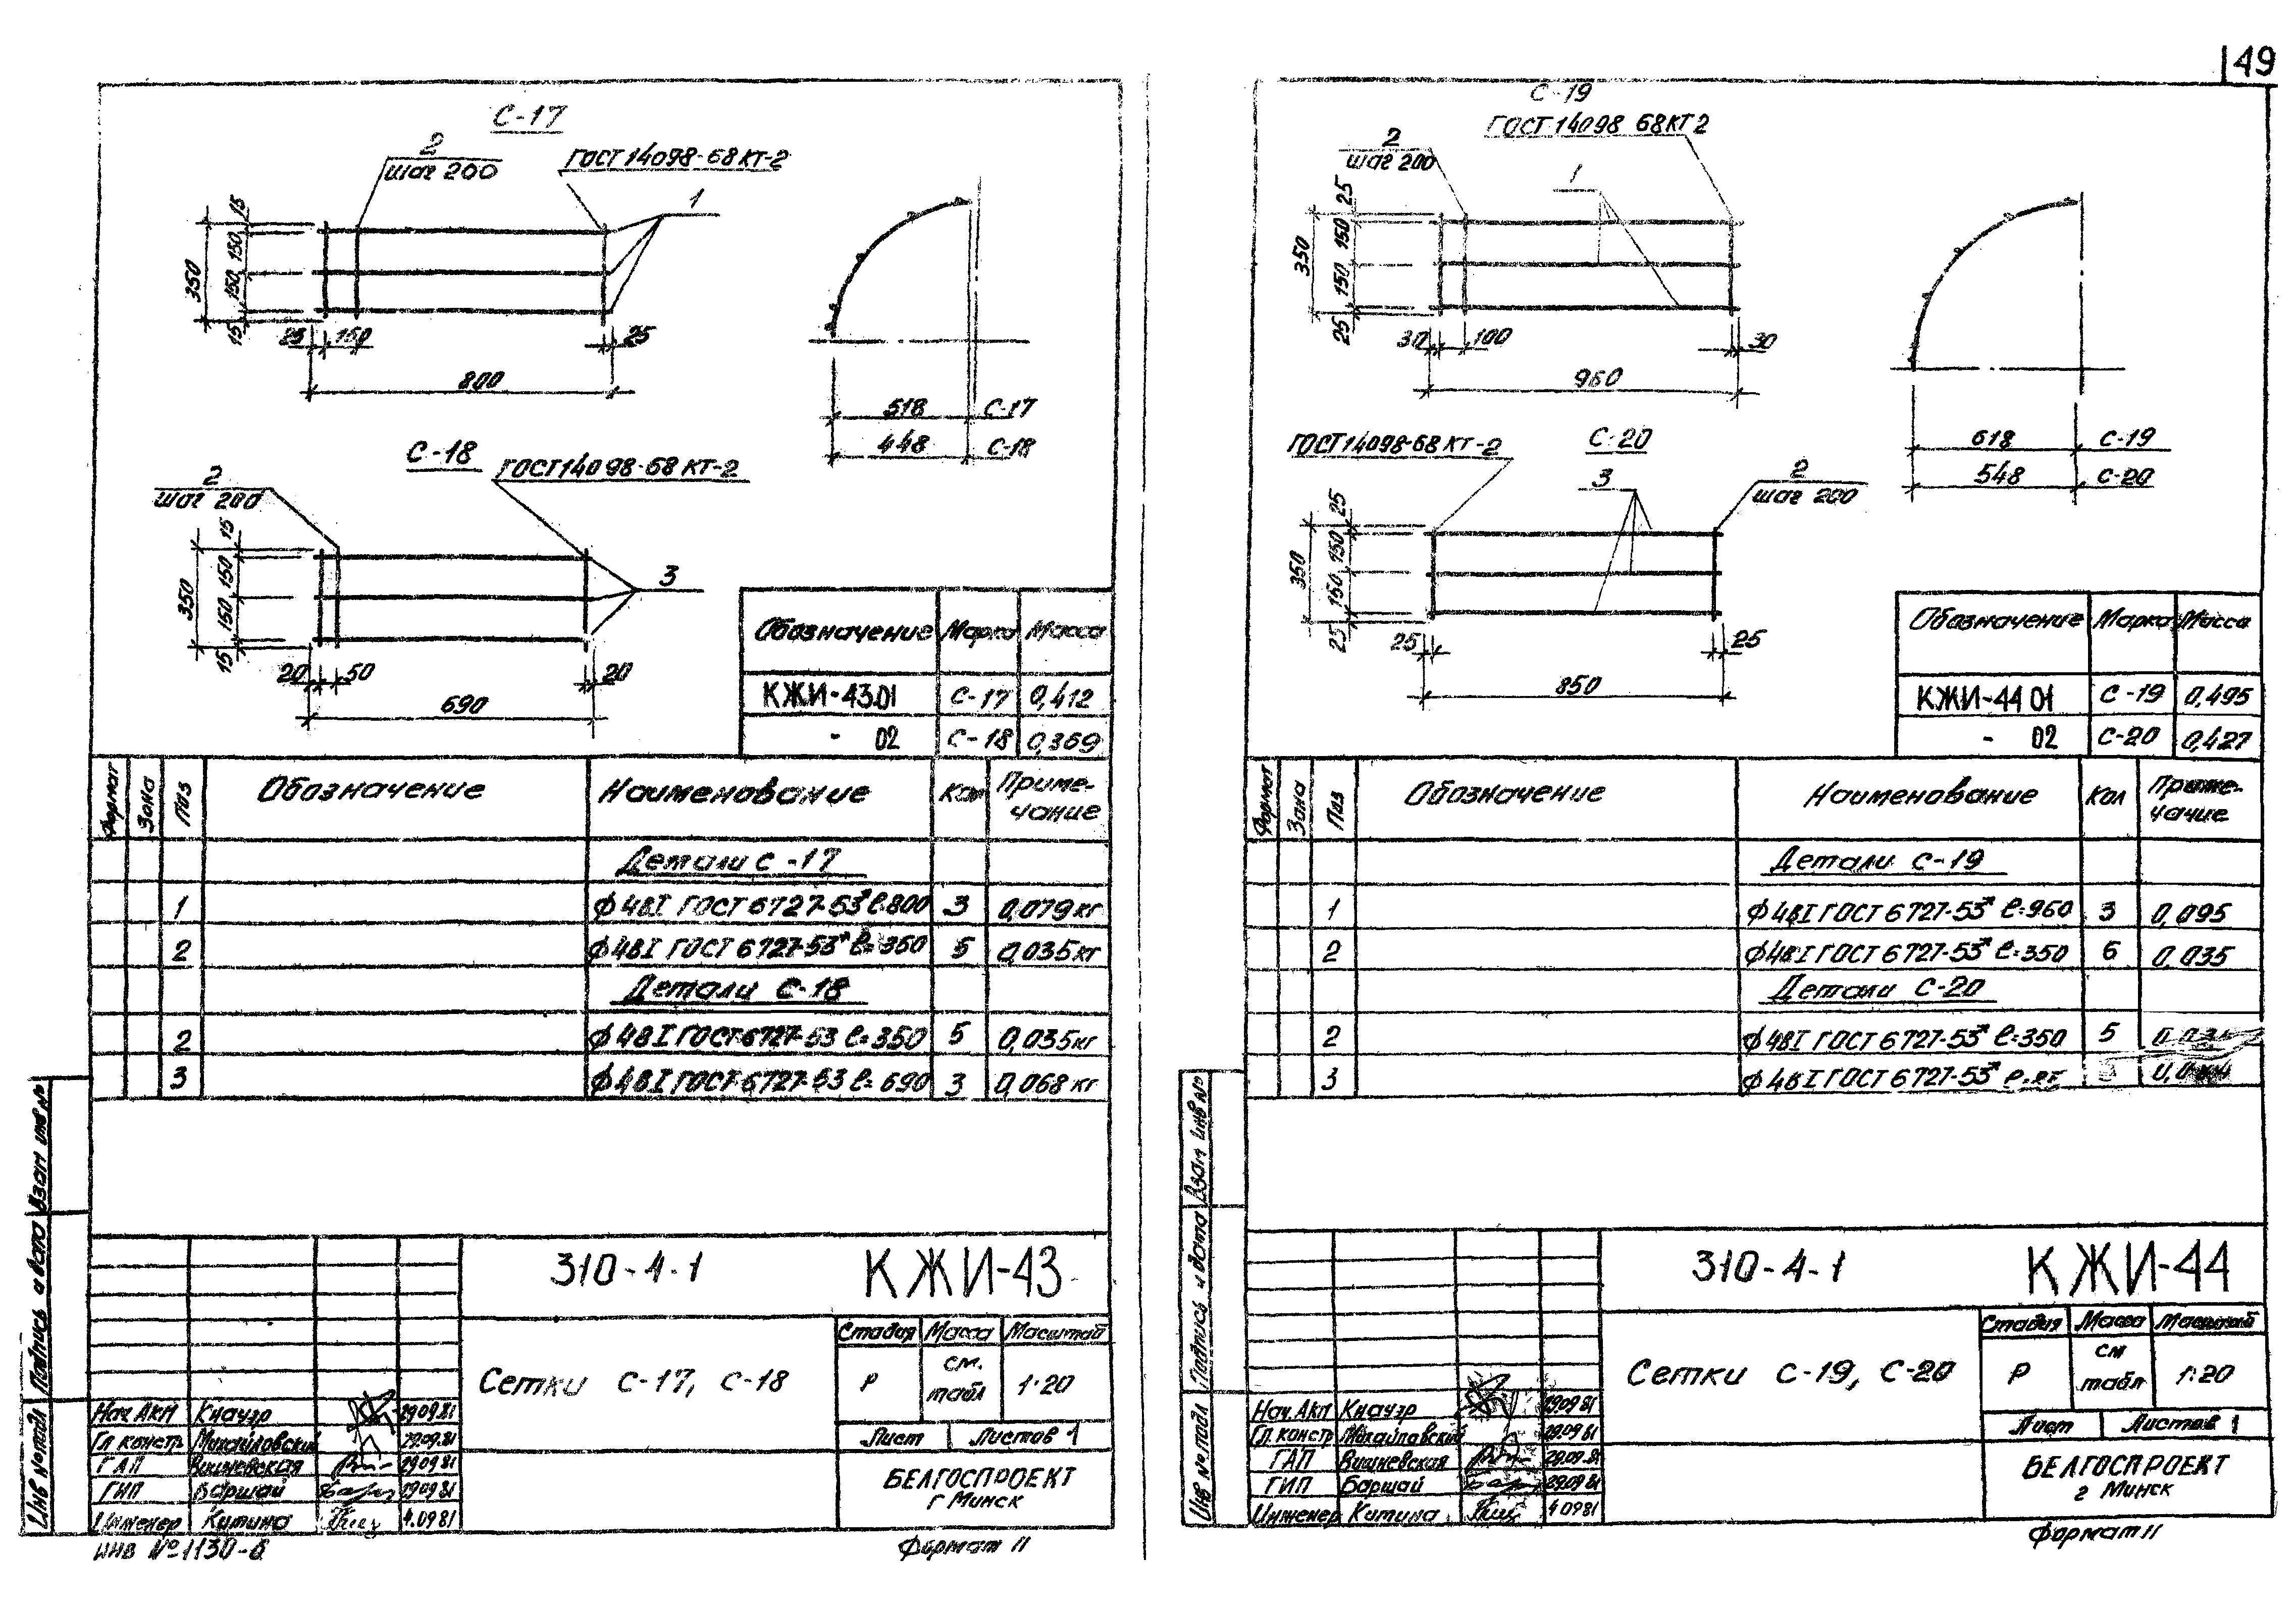 149
С-17
2
шаг 200
ГОСТ 14098-68 КТ-2
1
15
150
150
15
350
25
150
25
800
518 С-17
448 С-18
С-18
ГОСТ 14098-68 КТ-2
2
шаг 200
3
15
150
150
15
350
20
50
20
690
Обозначение Марка Масса
КЖИ-43.01 С-17 0,412
- 02 С-18 0,369
Формат Зона Поз Обозначение Наименование Кол Приме-
чание
Детали С-17
1 ф4ВI ГОСТ 6727-53* ℓ=800 3 0,079 кг
2 ф4ВI ГОСТ 6727-53* ℓ=350 5 0,035 кг
Детали С-18
2 ф4ВI ГОСТ 6727-53 ℓ=350 5 0,035 кг
3 ф4ВI ГОСТ 6727-53 ℓ=690 3 0,068 кг
310-4-1 КЖИ-43
Сетки С-17, С-18
Стадия Масса Масштаб
Р см. табл 1:20
Лист Листов 1
БЕЛГОСПРОЕКТ
г Минск
Нач. АКМ Кнауэр 29.09.81
Гл. констр Михайловский 29.09.81
ГАП Вишневская 29.09.81
ГИП Баршай 29.09.81
Инженер Китина 4.09.81
Инв № подл Подпись и дата Взам инв №
инв № 1130-6
Формат 11
С-19
ГОСТ 14098 68 КТ 2
2
шаг 200
1
25
150
150
25
350
30
100
30
960
618 С-19
548 С-20
С-20
ГОСТ 14098-68 КТ-2
3
2
шаг 200
25
150
150
25
350
25
25
850
Обозначение Марка Масса
КЖИ-44 01 С-19 0,495
- 02 С-20 0,427
Формат Зона Поз Обозначение Наименование Кол Приме-
чание
Детали С-19
1 ф4ВI ГОСТ 6727-53* ℓ=960 3 0,095
2 ф4ВI ГОСТ 6727-53* ℓ=350 6 0,035
Детали С-20
2 ф4ВI ГОСТ 6727-53* ℓ=350 5
3 ф4ВI ГОСТ 6727-53*
310-4-1 КЖИ-44
Сетки С-19, С-20
Стадия Масса Масштаб
Р см табл 1:20
Лист Листов 1
БЕЛГОСПРОЕКТ
г Минск
Нач. АКМ Кнауэр 29.09.81
Гл. констр Михайловский 29.09.81
ГАП Вишневская 29.09.81
ГИП Баршай 29.09.81
Инженер Китина 4 09 81
Инв № подл Подпись и дата Взам инв №
Формат 11